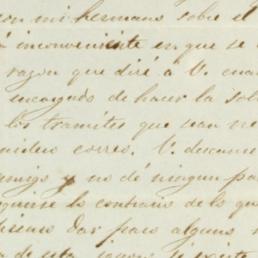 con mi hermano sobre el
á inconveniente en que se
razon que diré á V. cua
incargado de hacer la sol
los tramites que sean ne
corres. V. descanse
amigo y no dé ningun pa
contrario de lo qu
dar paso alguno